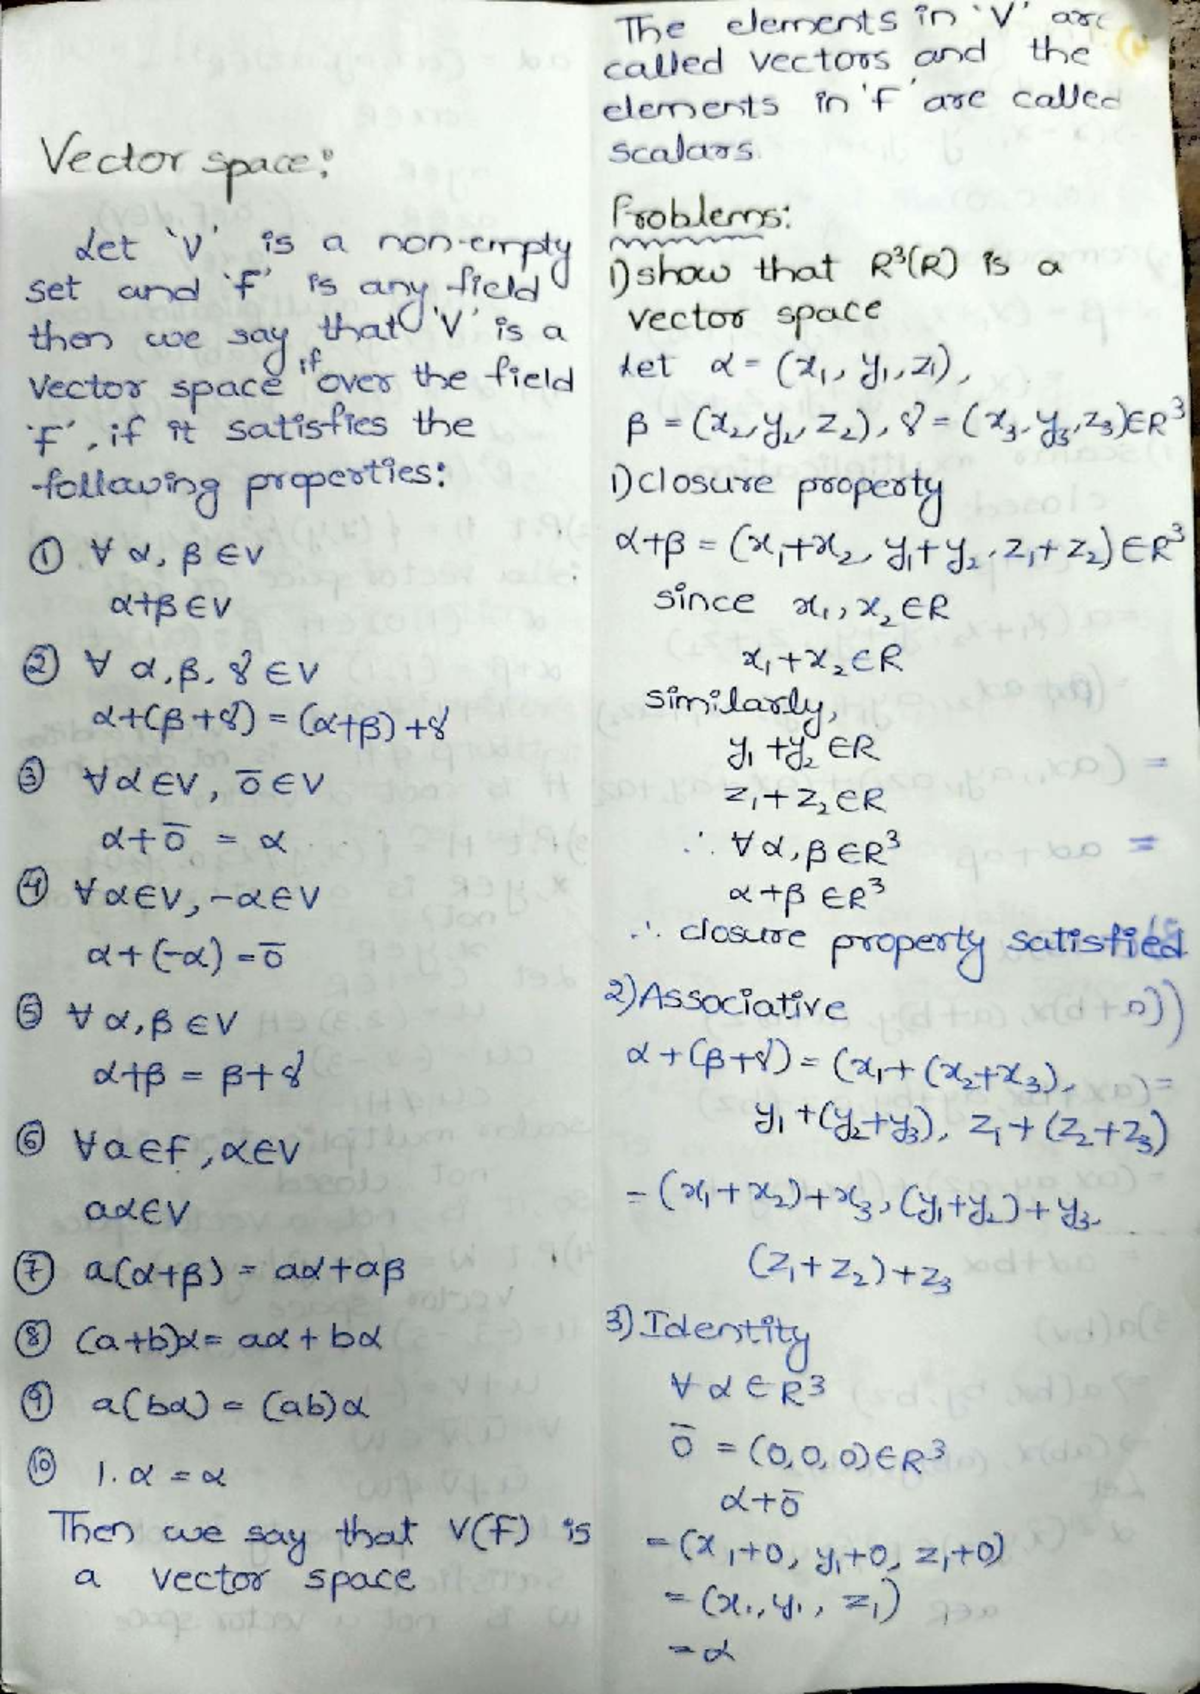 Vector space:
Let 'V' is a non-empty
set and 'F' is any field
then we say that 'V' is a
vector space if over the field
'F', if it satisfies the
following properties:
① ∀ α, β ∈ V
α+β ∈ V
② ∀ α, β, γ ∈ V
α+(β+γ) = (α+β)+γ
③ ∀ α ∈ V, ō ∈ V
α+ō = α
④ ∀ α ∈ V, -α ∈ V
α+(-α) = ō
⑤ ∀ α, β ∈ V
α+β = β+γ
⑥ ∀ a ∈ F, α ∈ V
aα ∈ V
⑦ a(α+β) = aα+aβ
⑧ (a+b)α = aα + bα
⑨ a(bα) = (ab)α
⑩ 1.α = α
Then we say that V(F) is
a vector space
The elements in 'V' are
called vectors and the
elements in 'F' are called
scalars.
Problems:
1) show that R³(R) is a
vector space
Let α = (x₁, y₁, z₁),
β = (x₂, y₂, z₂), γ = (x₃, y₃, z₃) ∈ R³
1) closure property
α+β = (x₁+x₂, y₁+y₂, z₁+z₂) ∈ R³
since x₁, x₂ ∈ R
x₁+x₂ ∈ R
similarly,
y₁+y₂ ∈ R
z₁+z₂ ∈ R
∴ ∀ α, β ∈ R³
α+β ∈ R³
∴ closure property satisfied
2) Associative
α+(β+γ) = (x₁+(x₂+x₃),
y₁+(y₂+y₃), z₁+(z₂+z₃)
= (x₁+x₂)+x₃, (y₁+y₂)+y₃,
(z₁+z₂)+z₃
3) Identity
∀ α ∈ R³
ō = (0, 0, 0) ∈ R³
α+ō
= (x₁+0, y₁+0, z₁+0)
= (x₁, y₁, z₁)
= α